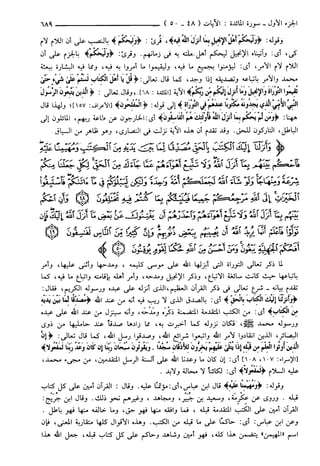 الجزء الأول - سورة المائدة : الآيات (٤٨ - ٥٠) ٦٨٩
وقوله: ﴿وَلْيَحْكُمْ أَهْلُ الْإِنجِيلِ بِمَا أَنزَلَ اللَّهُ فِيهِ﴾، قُرئ: ﴿وَلِيَحْكُمَ﴾ بالنصب على أن اللام لام
كي، أي: وآتيناه الإنجيل ليحكم أهل ملته به في زمانهم. وقرئ: ﴿وَلْيَحْكُمْ﴾ بالجزم على أن
اللام لام الأمر، أي: ليؤمنوا بجميع ما فيه، وليقيموا ما أمروا به فيه، ومما فيه البشارة ببعثة
محمد والأمر باتباعه وتصديقه إذا وجد، كما قال تعالى: ﴿قُلْ يَا أَهْلَ الْكِتَابِ لَسْتُمْ عَلَى شَيْءٍ حَتَّى
تُقِيمُوا التَّوْرَاةَ وَالْإِنجِيلَ وَمَا أُنزِلَ إِلَيْكُم مِّن رَّبِّكُمْ﴾ الآية [المائدة: ٦٨]. وقال تعالى: ﴿الَّذِينَ يَتَّبِعُونَ الرَّسُولَ
النَّبِيَّ الْأُمِّيَّ الَّذِي يَجِدُونَهُ مَكْتُوبًا عِندَهُمْ فِي التَّوْرَاةِ﴾ إلى قوله: ﴿الْمُفْلِحُونَ﴾ [الأعراف: ١٥٧]؛ ولهذا قال
ههنا: ﴿وَمَن لَّمْ يَحْكُم بِمَا أَنزَلَ اللَّهُ فَأُولَٰئِكَ هُمُ الْفَاسِقُونَ﴾ أي: الخارجون عن طاعة ربهم، المائلون إلى
الباطل، التاركون للحق. وقد تقدم أن هذه الآية نزلت في النصارى، وهو ظاهر من السياق.
﴿وَأَنزَلْنَا إِلَيْكَ الْكِتَابَ بِالْحَقِّ مُصَدِّقًا لِّمَا بَيْنَ يَدَيْهِ مِنَ الْكِتَابِ وَمُهَيْمِنًا عَلَيْهِ
فَاحْكُم بَيْنَهُم بِمَا أَنزَلَ اللَّهُ وَلَا تَتَّبِعْ أَهْوَاءَهُمْ عَمَّا جَاءَكَ مِنَ الْحَقِّ لِكُلٍّ جَعَلْنَا مِنكُمْ
شِرْعَةً وَمِنْهَاجًا وَلَوْ شَاءَ اللَّهُ لَجَعَلَكُمْ أُمَّةً وَاحِدَةً وَلَٰكِن لِّيَبْلُوَكُمْ فِي مَا آتَاكُمْ فَاسْتَبِقُوا
الْخَيْرَاتِ إِلَى اللَّهِ مَرْجِعُكُمْ جَمِيعًا فَيُنَبِّئُكُم بِمَا كُنتُمْ فِيهِ تَخْتَلِفُونَ ﴿٤٨﴾ وَأَنِ احْكُم
بَيْنَهُم بِمَا أَنزَلَ اللَّهُ وَلَا تَتَّبِعْ أَهْوَاءَهُمْ وَاحْذَرْهُمْ أَن يَفْتِنُوكَ عَن بَعْضِ مَا أَنزَلَ اللَّهُ إِلَيْكَ فَإِن
تَوَلَّوْا فَاعْلَمْ أَنَّمَا يُرِيدُ اللَّهُ أَن يُصِيبَهُم بِبَعْضِ ذُنُوبِهِمْ وَإِنَّ كَثِيرًا مِّنَ النَّاسِ لَفَاسِقُونَ ﴿٤٩﴾
أَفَحُكْمَ الْجَاهِلِيَّةِ يَبْغُونَ وَمَنْ أَحْسَنُ مِنَ اللَّهِ حُكْمًا لِّقَوْمٍ يُوقِنُونَ ﴿٥٠﴾
لما ذكر تعالى التوراة التي أنزلها الله على موسى كليمه، ومدحها وأثنى عليها، وأمر
باتباعها حيث كانت سائغة الاتباع، وذكر الإنجيل ومدحه، وأمر أهله بإقامته واتباع ما فيه، كما
تقدم بيانه - شرع تعالى في ذكر القرآن العظيم، الذي أنزله على عبده ورسوله الكريم، فقال:
﴿وَأَنزَلْنَا إِلَيْكَ الْكِتَابَ بِالْحَقِّ﴾ أي: بالصدق الذي لا ريب فيه أنه من عند الله ﴿مُصَدِّقًا لِّمَا بَيْنَ يَدَيْهِ
مِنَ الْكِتَابِ﴾ أي: من الكتب المتقدمة المتضمنة ذكرَه ومَدْحَه، وأنه سينزل من عند الله على عبده
ورسوله محمد ﷺ، فكان نزوله كما أخبرت به، مما زادها صدقاً عند حامليها من ذوي
البصائر، الذين انقادوا لأمر الله واتبعوا شرائع الله، وصدقوا رسل الله، كما قال تعالى: ﴿إِنَّ
الَّذِينَ أُوتُوا الْعِلْمَ مِن قَبْلِهِ إِذَا يُتْلَى عَلَيْهِمْ يَخِرُّونَ لِلْأَذْقَانِ سُجَّدًا وَيَقُولُونَ سُبْحَانَ رَبِّنَا إِن كَانَ وَعْدُ رَبِّنَا لَمَفْعُولًا﴾
[الإسراء: ١٠٧، ١٠٨] أي: إن كان ما وعدنا الله على ألسنة الرسل المتقدمين، من مجيء محمد،
عليه السلام ﴿لَمَفْعُولًا﴾ أي: لكائناً لا محالة ولابد.
وقوله: ﴿وَمُهَيْمِنًا عَلَيْهِ﴾ قال ابن عباس، أي: مؤتمناً عليه. وقال: القرآن أمين على كل كتاب
قبله. وروي عن عكرمة، وسعيد بن جُبَير، ومجاهد، وغيرهم نحو ذلك. وقال ابن جُرَيج:
القرآن أمين على الكتب المتقدمة قبله، فما وافقه منها فهو حق، وما خالفه منها فهو باطل.
وعن ابن عباس: أي: حاكماً على ما قبله من الكتب. وهذه الأقوال كلها متقاربة المعنى، فإن
اسم «المهيمن» يتضمن هذا كله، فهو أمين وشاهد وحاكم على كل كتاب قبله، جعل الله هذا